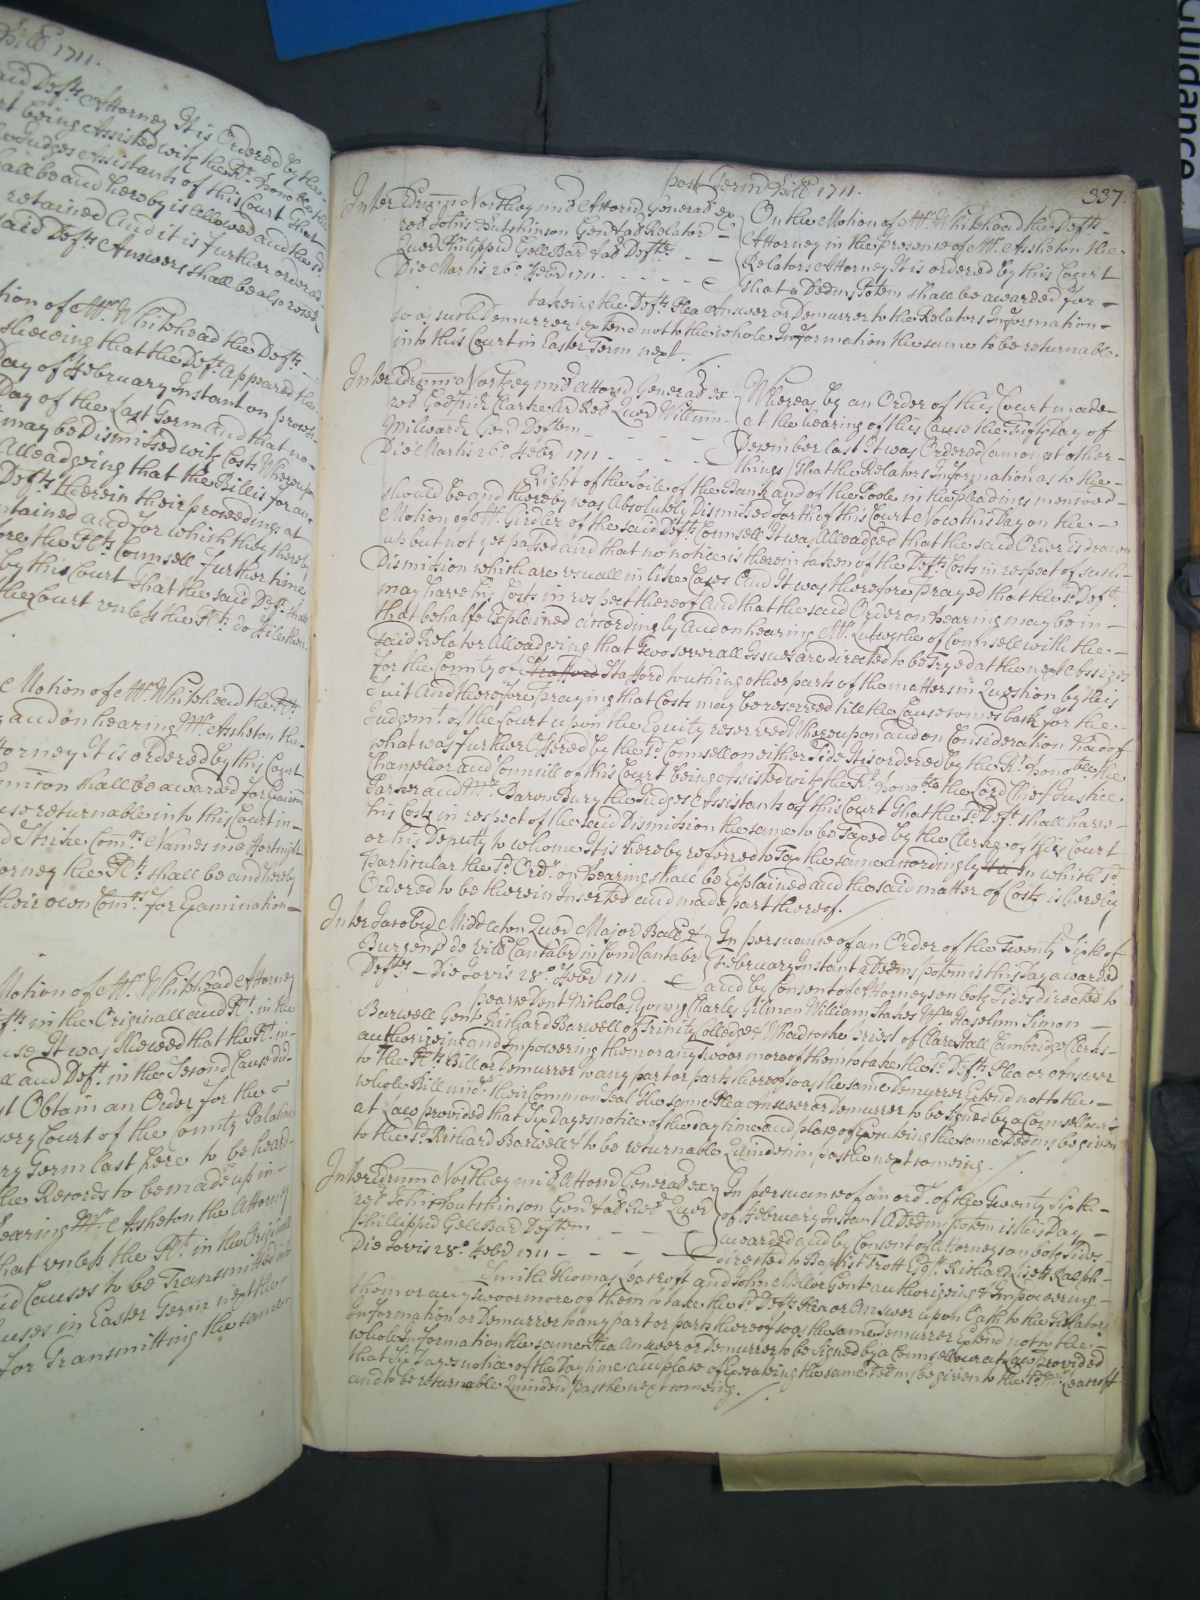 Hill 1711.
said Defts Attorney It is Ordered by the
rt being Assisted with the Rt. honoble the
Judges Assistants of this Court That
all be and hereby is allowed and the sd
retained And it is further ordered
said Defts Answers shall be also
tion of Mr. Whitehead the Defts
shewing that the Deft. Appeared the
Day of February Instant on
Day of the Last Term And that no
may be Dismissed with Costs Whereupon
Alleadgeing that the Bill is for an
Defts. therein their proceedings at
ntained and for which they
the Plts Counsell further time
by this Court that the said Deft. shall
the Court unless the Plt. do file
Motion of Mr. Whitehead the Plts
and on hearing Mr. Assheton the
torney It is ordered by this Court
shall be award for Examn
returnable into this Court in
d Strike Comrs Names in a fortnight
orney the Plt. shall be and hereby
their own Comrs. for Examination
Motion of Mr. Whitehead Attorney
fts in the Originall and Plt. in the
use It was Shewed that the Plt. in
ll and Deft. in the Second Cause did
Obtain an Order for the
Court of the County Palatine
ry Term last here to be heard
the Records to be made up in
earing Mr. Assheton the Attorney
hat unless the Plt. in the Originall
id Causes to be Transmitted
uses in Easter Term next the
for Transmitting the same
post Term Hill 1711.
337.
Inter Northey mil Attorn General ex
rel Johis Hutchinson Gen Relator
Quer Philippu Gell Bar Defts.
Die Martis 26o Febr 1711.
On the Motion of Mr. Whitehead the Defts
Attorney in the presence of Mr. Assheton the
Relators Attorney It is ordered by this Court
that a Dedms Potem shall be awarded for
takeing the Defts. Plea Answer or Demurrer to the Relators Information
so as such Demurrer extend not to the whole Information the same to be returnable
into this Court in Easter Term next.
Inter Northey mil Attorn General ex
rel Godfrid Clarke Ar Rel Quer Willim
Milward Gen Deftem
Die Martis 26o Febr 1711.
Whereas by an Order of this Court made
at the hearing of this Cause the Fifth Day of
December last It was Ordered (amongst other
things) that the Relators Information as to the
Right of the Soile of the Bank and of the Poole in the pleadings menconed
should be and thereby was Absolutely Dismissed forth of this Court Now this Day on the
Motion of Mr. Girdler of the said Defts Counsell It was Alleadged that the said Order is drawn
up but not yet passed and that no notice is therein taken of the Defts Costs in respect of such
Dismission which are usuall in like Cases And It was therefore prayed that the sd Deft.
may have his Costs in respect thereof And that the said Order on hearing may be in
that behalfe Explained accordingly And on hearing Mr. Lutwythe of Counsell with the
said Relator Alleadgeing that Two severall Issues are directed to be Tryed at the next Assizes
for the County of Strafford Stafford touching other parts of the matters in Question by this
Suit And therefore praying that Costs may be reserved till the Cause comes back for the
Judgemt. of the Court upon the Equity reserved Whereupon and on Consideration had of
what was further Offered by the sd. Counsell on either Side It is ordered by the Rt. honoble the
Chancellor and Councill of this Court being assisted with the Rt. honoble the Lord Chief Justice
Parker and Mr. Baron Bury the Judges Assistants of this Court That the sd Deft. shall have
his Costs in respect of the said Dismission the same to be Taxed by the Clerke of this Court
or his Deputy to whome It is hereby referred to Tax the same accordingly In which sd
particular the sd. Ordr. on hearing shall be Explained and the said matter of Costs is hereby
Ordered to be therein Inserted and made part thereof.
Inter Jacobu Middleton Quer Major Ball &
Burgens de vill Cantabr in Com Cantabr
Deftes Die Jovis 28o Febr 1711.
In persuance of an Order of the Twenty Sixth of
February Instant a Dedms potem is this Day awarded
and by Consent of Attorneys on both Sides directed to
Dent Nicholas Charles Gilman William Stakes Haselum Simon
Barwell Gent. Richard Barwell of Trinity Colledge & of Clare Hall Cambridge Clerks
authorizeing and Impowering them or any two or more of them to take the sd. Defts. Plea or Answer
to the Plts Bill or Demurrer to any part or parts thereof so as the same Demurrer Extend not to the
whole Bill undr. their Common Seal the same Plea Answer or Demurrer to be Signed by a Counsellour
at Law provided that Six Dayes notice of the day time and place of Executeing the same Dedms be given
to the sd. Richard Barwell & to be returnable Quinden pasche next comeing.
Inter Northey mil Attorn General ex
rel Johis Hutchinson Gen Rel Quer
Phillippu Gell Bar Deftem
Die Jovis 28o Febr 1711
In persuance of an ordr. of the Twenty Sixth
of February Instant A Dedms potem is this Day
awarded and by Consent of Attorneys on both Sides
directed to Baptist Trott Esqr. Richard Ralph
Smith Thomas Leacroft and John Mellor Gent authorizeing & Impowering
them or any two or more of them to take the sd. Defts. Plea or Answer upon Oath to the Relators
Information or Demurrer to any part or parts thereof so as the same Demurrer Extend not to the
whole Information the same Plea Answer or Demurrer to be Signed by a Counsellour at Law provided
that Six Dayes notice of the Day time and place of Executeing the same Dedms be given to the sd. Mr. Leacroft
and to be returnable Quinden pasche next comeing.
Guidance